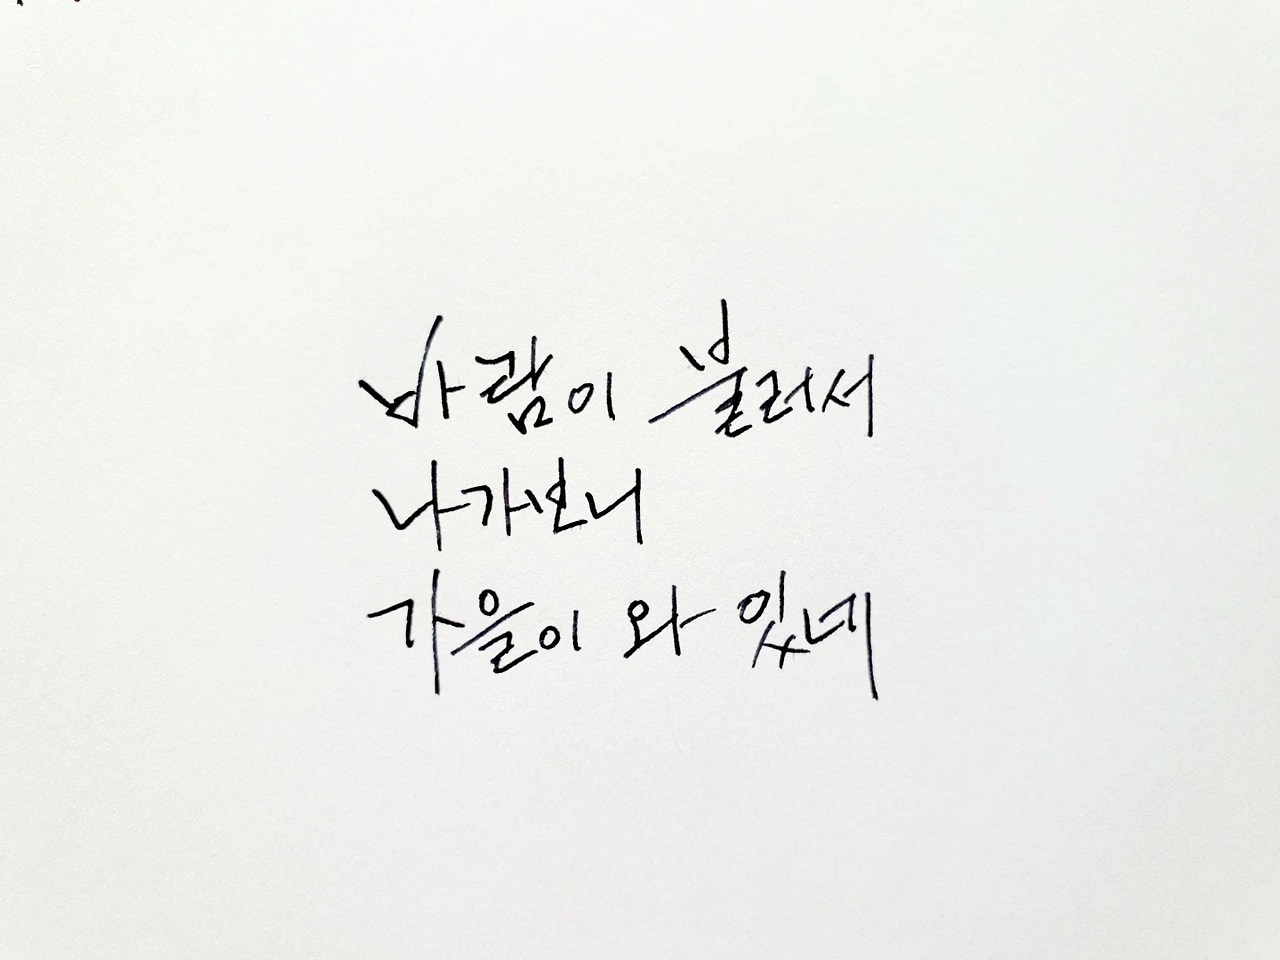 바람이 불러서
나가보니
가을이 와 있네